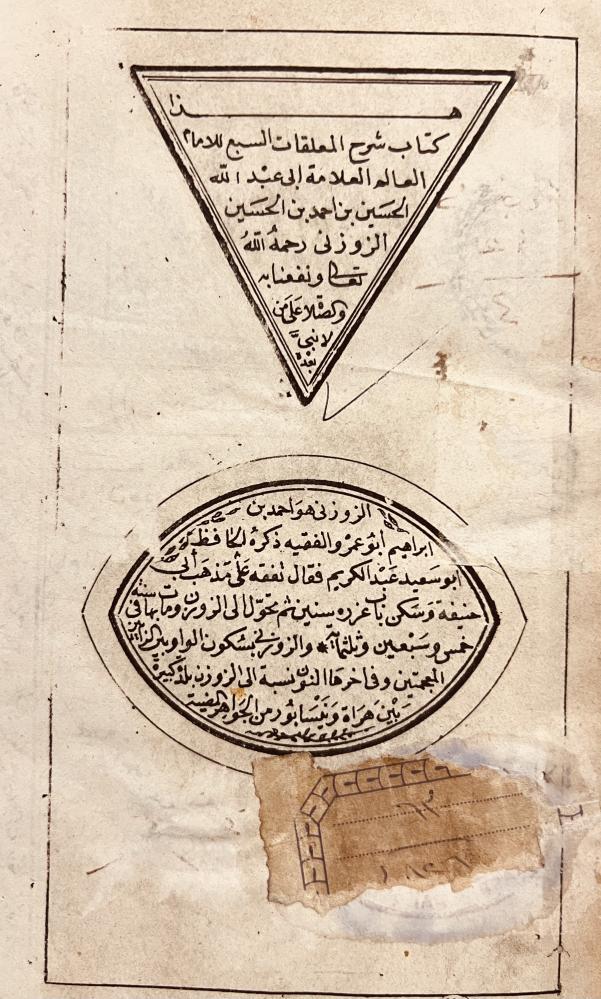 هذا
كتاب شرح المعلقات السبع للامام
العالم العلامة ابى عبد الله
الحسين بن احمد بن الحسين
الزوزنى رحمه الله
تعالى ونفعنا به
وصلا على من
لا نبى
بعده
الزوزنى هو احمد بن
ابراهيم ابو عمرو الفقيه ذكره الحافظ
ابو سعيد عبد الكريم فقال تفقه على مذهب ابى
حنيفة وسكن باب عزره سنين ثم تحول الى الزوزن ومات بها فى سنة
خمس وسبعين وثلثمائة والزوزنى بسكون الواو بين الزائين
المعجمتين وفى اخرها النون نسبة الى الزوزن بلدة كبيرة
بين هراة ونيسابور من الجواهر المضية